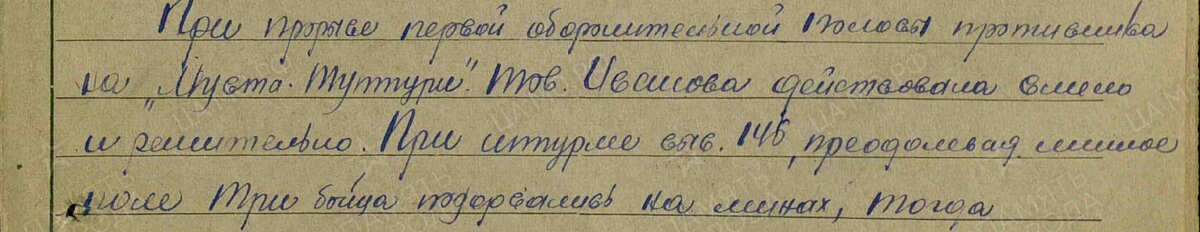 При прорыве первой оборонительной полосы противника
на "Муста-Тунтури". Тов. Иванова действовала смело
и решительно. При штурме выс. 146, преодолевая минное
поле три бойца подорвались на минах, тогда